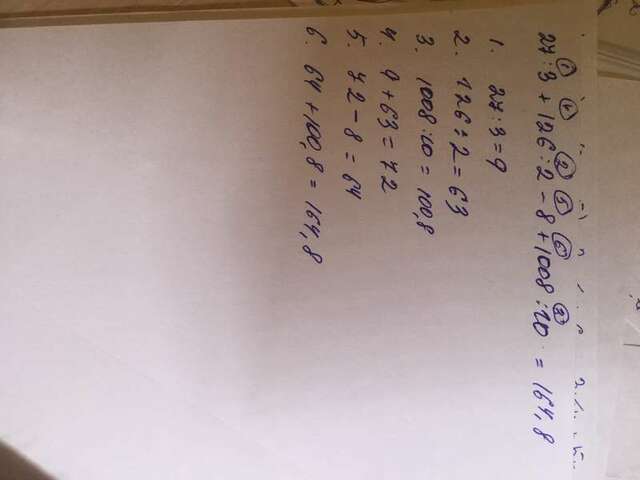 27 : 3 + 126 : 2 - 8 + 1008 : 10 = 164,8
1. 27 : 3 = 9
2. 126 : 2 = 63
3. 1008 : 10 = 100,8
4. 9 + 63 = 72
5. 72 - 8 = 64
6. 64 + 100,8 = 164,8